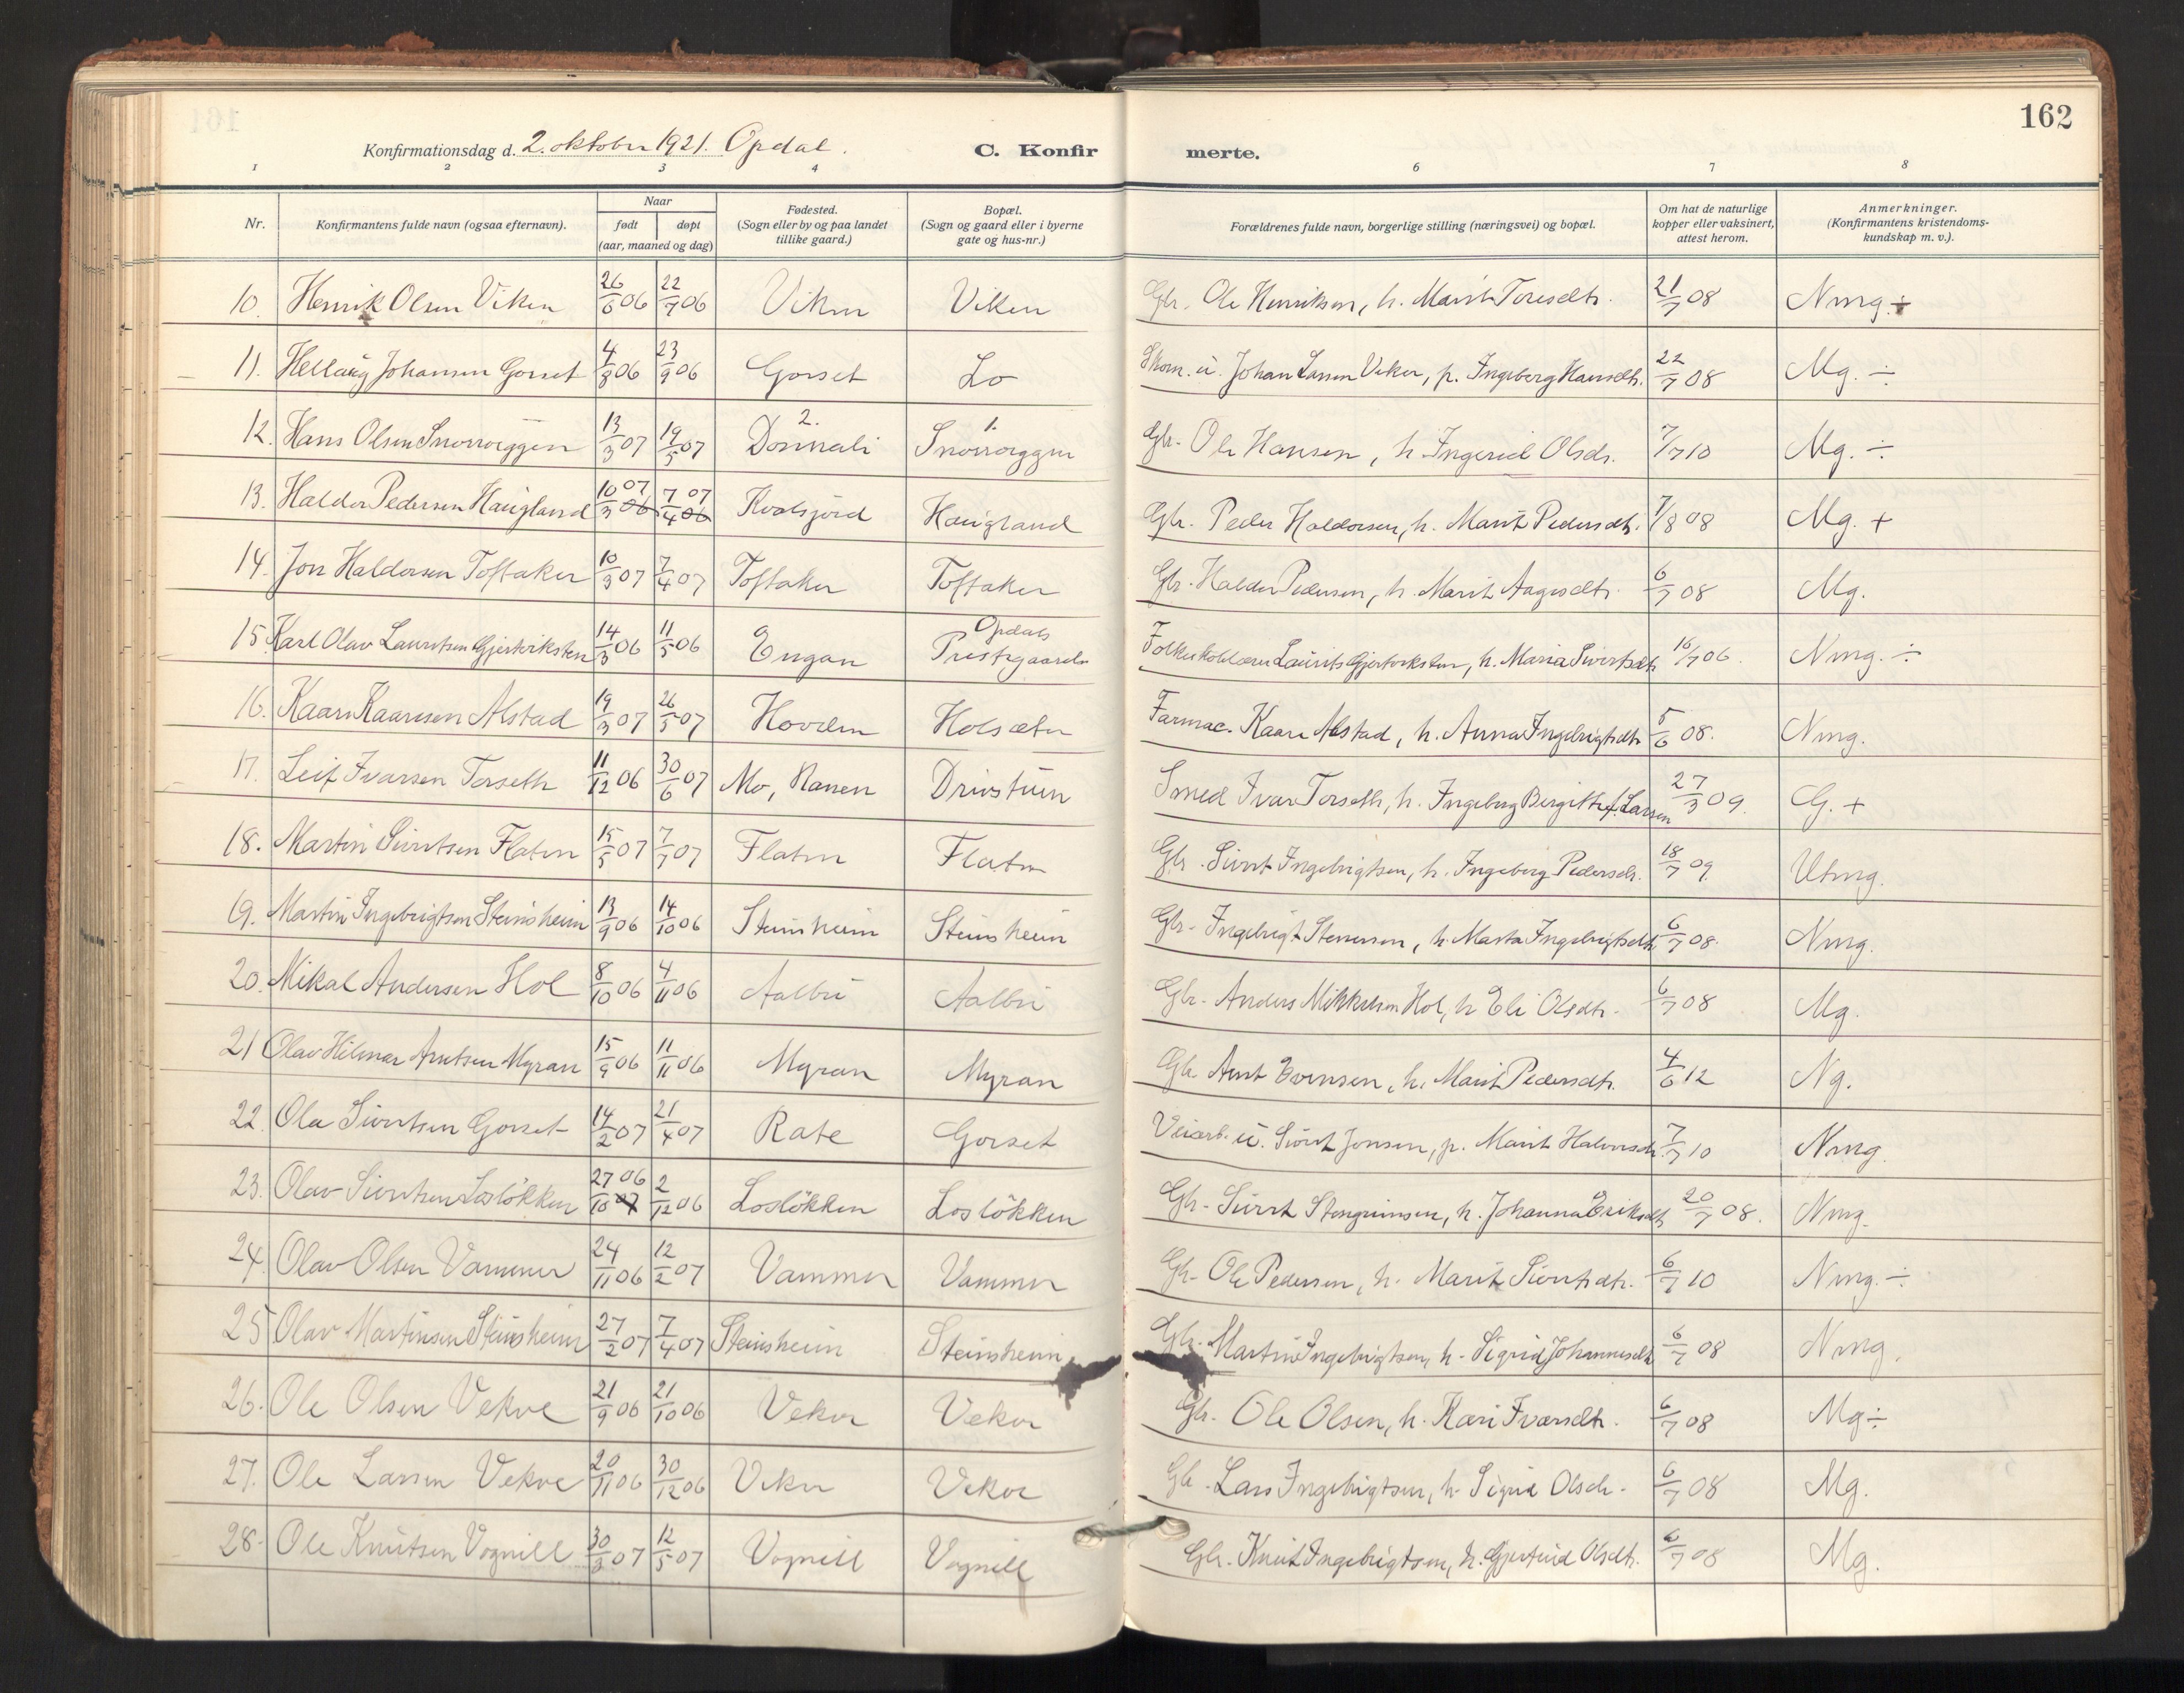 162
Konfirmationsdag d. 2. oktober 1921. Opdal. C. Konfirmerte.
1 2 3 4 6 7 8
Nr. Konfirmantens fulde navn (ogsaa efternavn). Naar født døpt (aar, maaned og dag) Fødested. (Sogn eller by og paa landet tillike gaard.) Bopæl. (Sogn og gaard eller i byerne gate og hus-nr.) Forældrenes fulde navn, borgerlige stilling (næringsvei) og bopæl. Om hat de naturlige kopper eller vaksinert, attest herom. Anmerkninger. (Konfirmantens kristendoms-kundskap m. v.).
10. Henrik Olsen Viken 26/6 06 22/7 06 Viken Viken Gbr. Ole Henriksen, h. Marit Toresdtr. 21/7 08 Nmg. ÷
11. Hellaug Johansen Gorset 4/8 06 23/9 06 Gorset Lo Skom. u. Johan Larsen Veker, p. Ingeberg Hansdtr. 22/7 08 Mg. ÷
12. Hans Olsen Snovvæggen 13/3 07 19/5 07 2. Donnali 1. Gbr. Ole Hansen, h. Ingerid Olsdr. 7/7 10 Mg. ÷
13. Haldor Pedersen Haugland 10/3 07 06 7/4 07 06 Kvalsjord Haugland Gbr. Peder Haldorsen, h. Marit Pedersdtr. 7/8 08 Mg. +
14. Jon Haldorsen Toftaker 10/3 07 7/4 07 Toftaker Toftaker Gbr. Haldor Pedersen, h. Marit Aagesdtr. 6/7 08 Mg.
15. Karl Olav Lauritsen Gjertviksten 14/3 06 11/5 06 Engan Opdals Prestegaard Laurits Gjertviksten, h. Maria Sivertsdtr. 16/7 06. Nmg. ÷
16. Kaare Kaaresen Alstad 19/3 07 26/5 07 Hovden Holsæter Farmac. Kaare Alstad, h. Anna Ingebrigtsdtr. 5/6 08. Nmg.
17. Leif Ivarsen Torseth 11/12 06 30/6 07 Mo, Ranen Drivstuen Smed Ivar Torseth, h. Ingeborg Birgitte f. Larsen 27/3 09. G. +
18. Martin Sivertsen Flaten 15/5 07 7/7 07 Flaten Flaten Gbr. Sivert Ingebrigtsen, h. Ingeborg Pedersdr. 18/7 09 Utmg.
19. Martin Ingebrigtsen Steinsheim 13/9 06 14/10 06 Steinsheim Steinsheim Gbr. Ingebrigt Stenersen, h. Marta Ingebrigtsdtr 6/7 08. Nmg.
20. Mikal Andersen Hol 8/10 06 4/11 06 Aalbu Aalbu Gbr. Anders Mikkelsen Hol, h. Eli Olsdtr. 6/7 08 Mg.
21 Olav Hilmar Arntsen Myran 15/9 06 11/11 06 Myran Myran Gbr. Arnt Evensen, h. Marit Pedersdtr. 4/6 12 Ng.
22. Ola Sivertsen Gorset 14/2 07 21/4 07 Rate Gorset Veiarb. u. Sivert Jonsen, p. Marit Halvorsdr. 7/7 10 Nmg.
23. Olav Sivertsen Losløkken 27/10 06 07 2/12 06 Losløkken Losløkken Gbr. Sivert Stengrimsen, h. Johanna Eriksdtr 20/7 08. Nmg.
24. Olav Olsen Vammer 24/11 06 12/2 07 Vammer Vammer Gbr. Ole Pedersen, h. Marit Sivertsdtr. 6/7 10 Nmg. ÷
25 Olav Martinsen Steinsheim 27/2 07 7/4 07 Steinsheim Steinsheim Gbr. Martin Ingebrigtsen, h. Sigrid Johannesdtr 6/7 08 Nmg.
26. Ole Olsen Vekve 21/9 06 21/10 06 Vekve Vekve Gbr. Ole Olsen, h. Kari Ivarsdtr. 6/7 08 Mg ÷
27. Ole Larsen Vekve 20/11 06 30/12 06 Vekve Vekve Gbr. Lars Ingebrigtsen, h. Sigrid Olsdr. 6/7 08 Mg.
28. Ole Knutsen Vognill 30/3 07 12/5 07 Vognill Vognill Gbr. Knut Ingebrigtsen, h. Gjertrud Olsdtr. 6/7 08 Mg.